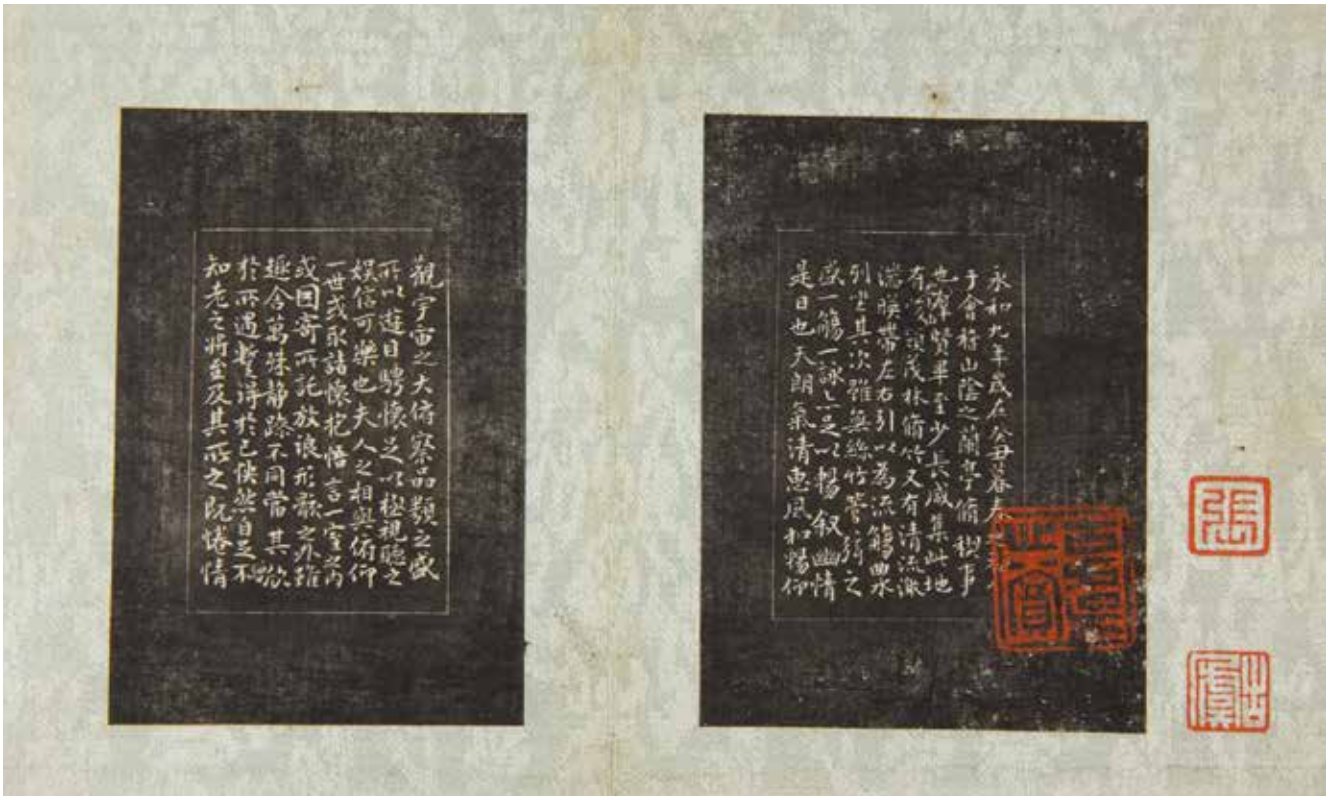 永和九年歲在癸丑暮春之初
于會稽山陰之蘭亭脩禊事
也羣賢畢至少長咸集此地
有崇領茂林脩竹又有清流激
湍暎帶左右引以為流觴曲水
列坐其次雖無絲竹管弦之
盛一觴一詠亦足以暢叙幽情
是日也天朗氣清惠風和暢仰
觀宇宙之大俯察品類之盛
所以遊目騁懷足以極視聽之
娛信可樂也夫人之相與俯仰
一世或取諸懷抱悟言一室之內
或因寄所託放浪形骸之外雖
趣舍萬殊靜躁不同當其欣
於所遇暫得於己怏然自足不
知老之將至及其所之既惓情
張